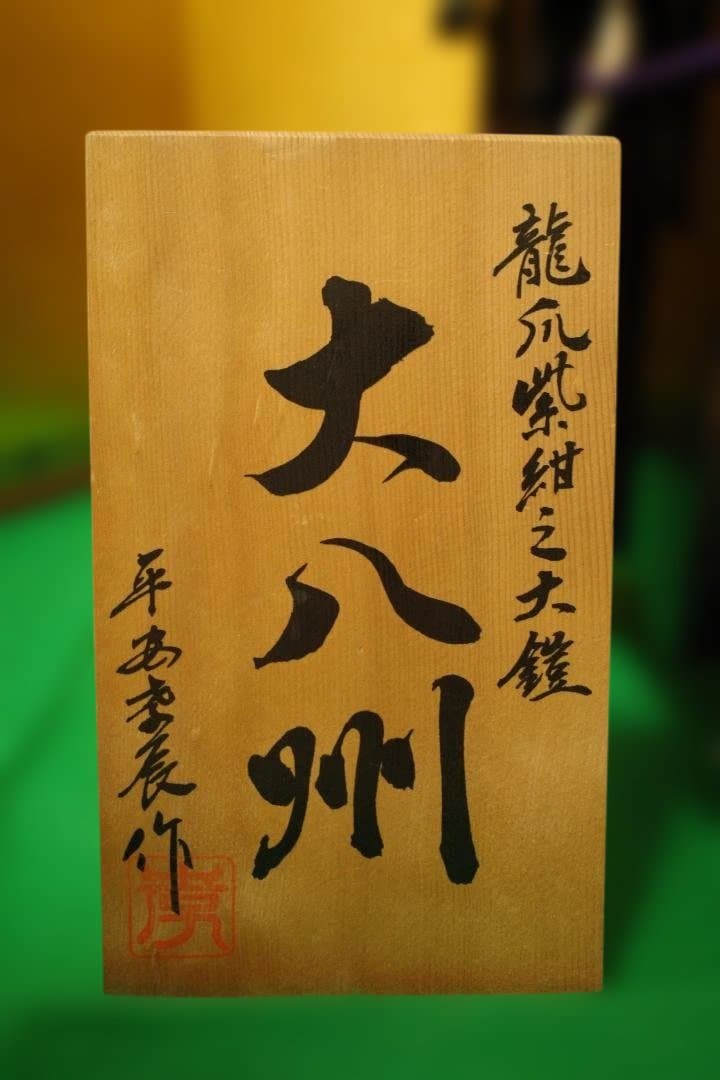 龍爪紫紺之大鎧
大八州
平安李辰作